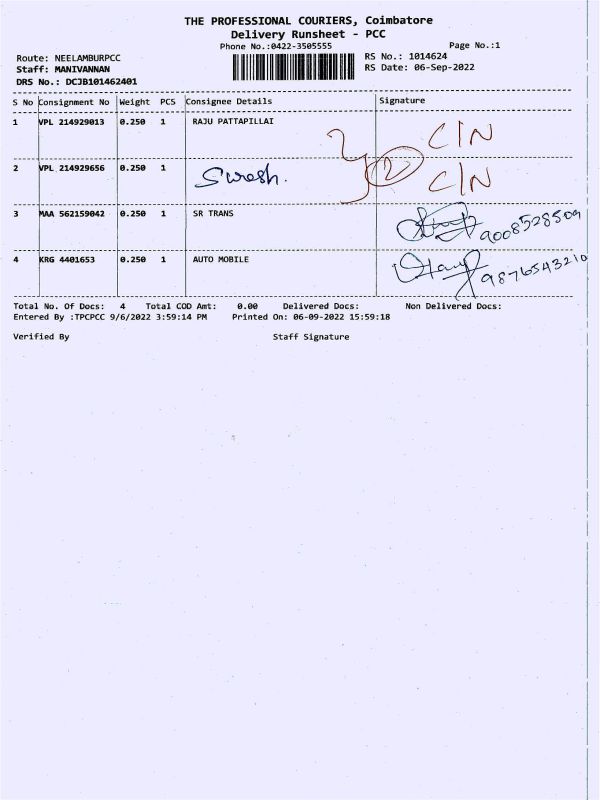 THE PROFESSIONAL COURIERS, Coimbatore
Delivery Runsheet - PCC
Phone No.:0422-3505555
Page No.:1
Route: NEELAMBURPCC
RS No.: 1014624
Staff: MANIVANNAN
RS Date: 06-Sep-2022
DRS No.: DCJB101462401
S No Consignment No Weight PCS Consignee Details Signature
1 VPL 214929013 0.250 1 RAJU PATTAPILLAI C/N
2 VPL 214929656 0.250 1 Suresh. 2 C/N
3 MAA 562159042 0.250 1 SR TRANS 9008528509
4 KRG 4401653 0.250 1 AUTO MOBILE 9876543210
Total No. Of Docs: 4 Total COD Amt: 0.00 Delivered Docs: Non Delivered Docs:
Entered By :TPCPCC 9/6/2022 3:59:14 PM Printed On: 06-09-2022 15:59:18
Verified By Staff Signature